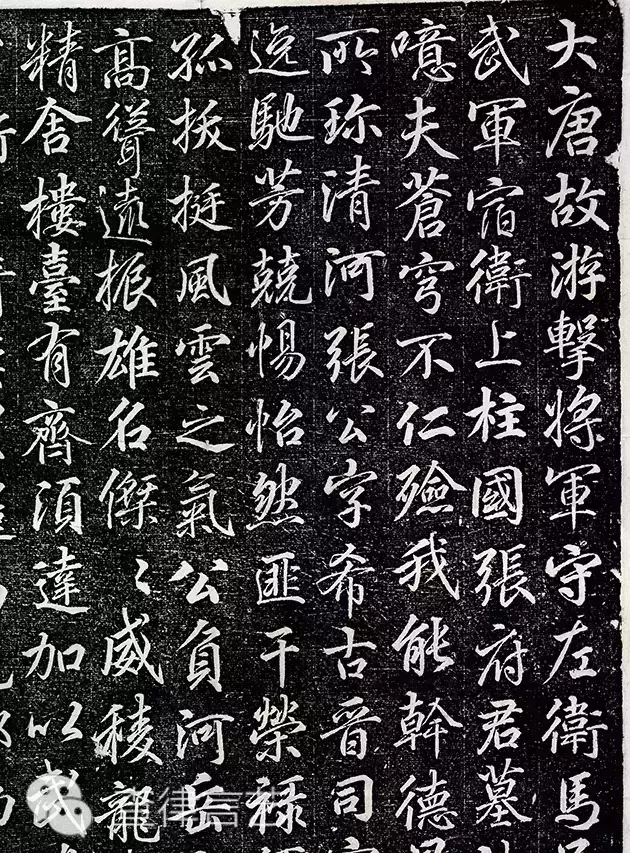 大唐故游擊將軍守左衛馬
武軍宿衛上柱國張府君墓
噫夫蒼穹不仁殮我能幹德
所珎清河張公字希古晉司
逸馳芳兢惕怡然匪干榮祿
孤拔挺風雲之氣公負河岳
高聳遠振雄名傑〻威稜龍
精舍樓臺有齊須達加以武